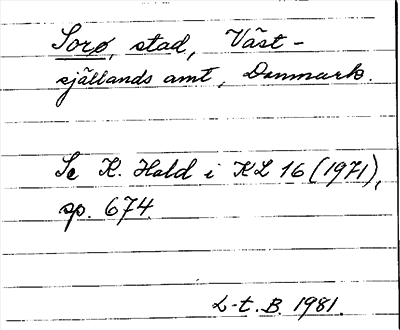 Sorø, stad, Väst-
själlands amt, Danmark.
Se K. Hald i KL 16 (1971),
sp. 674.
L-t. B. 1981.